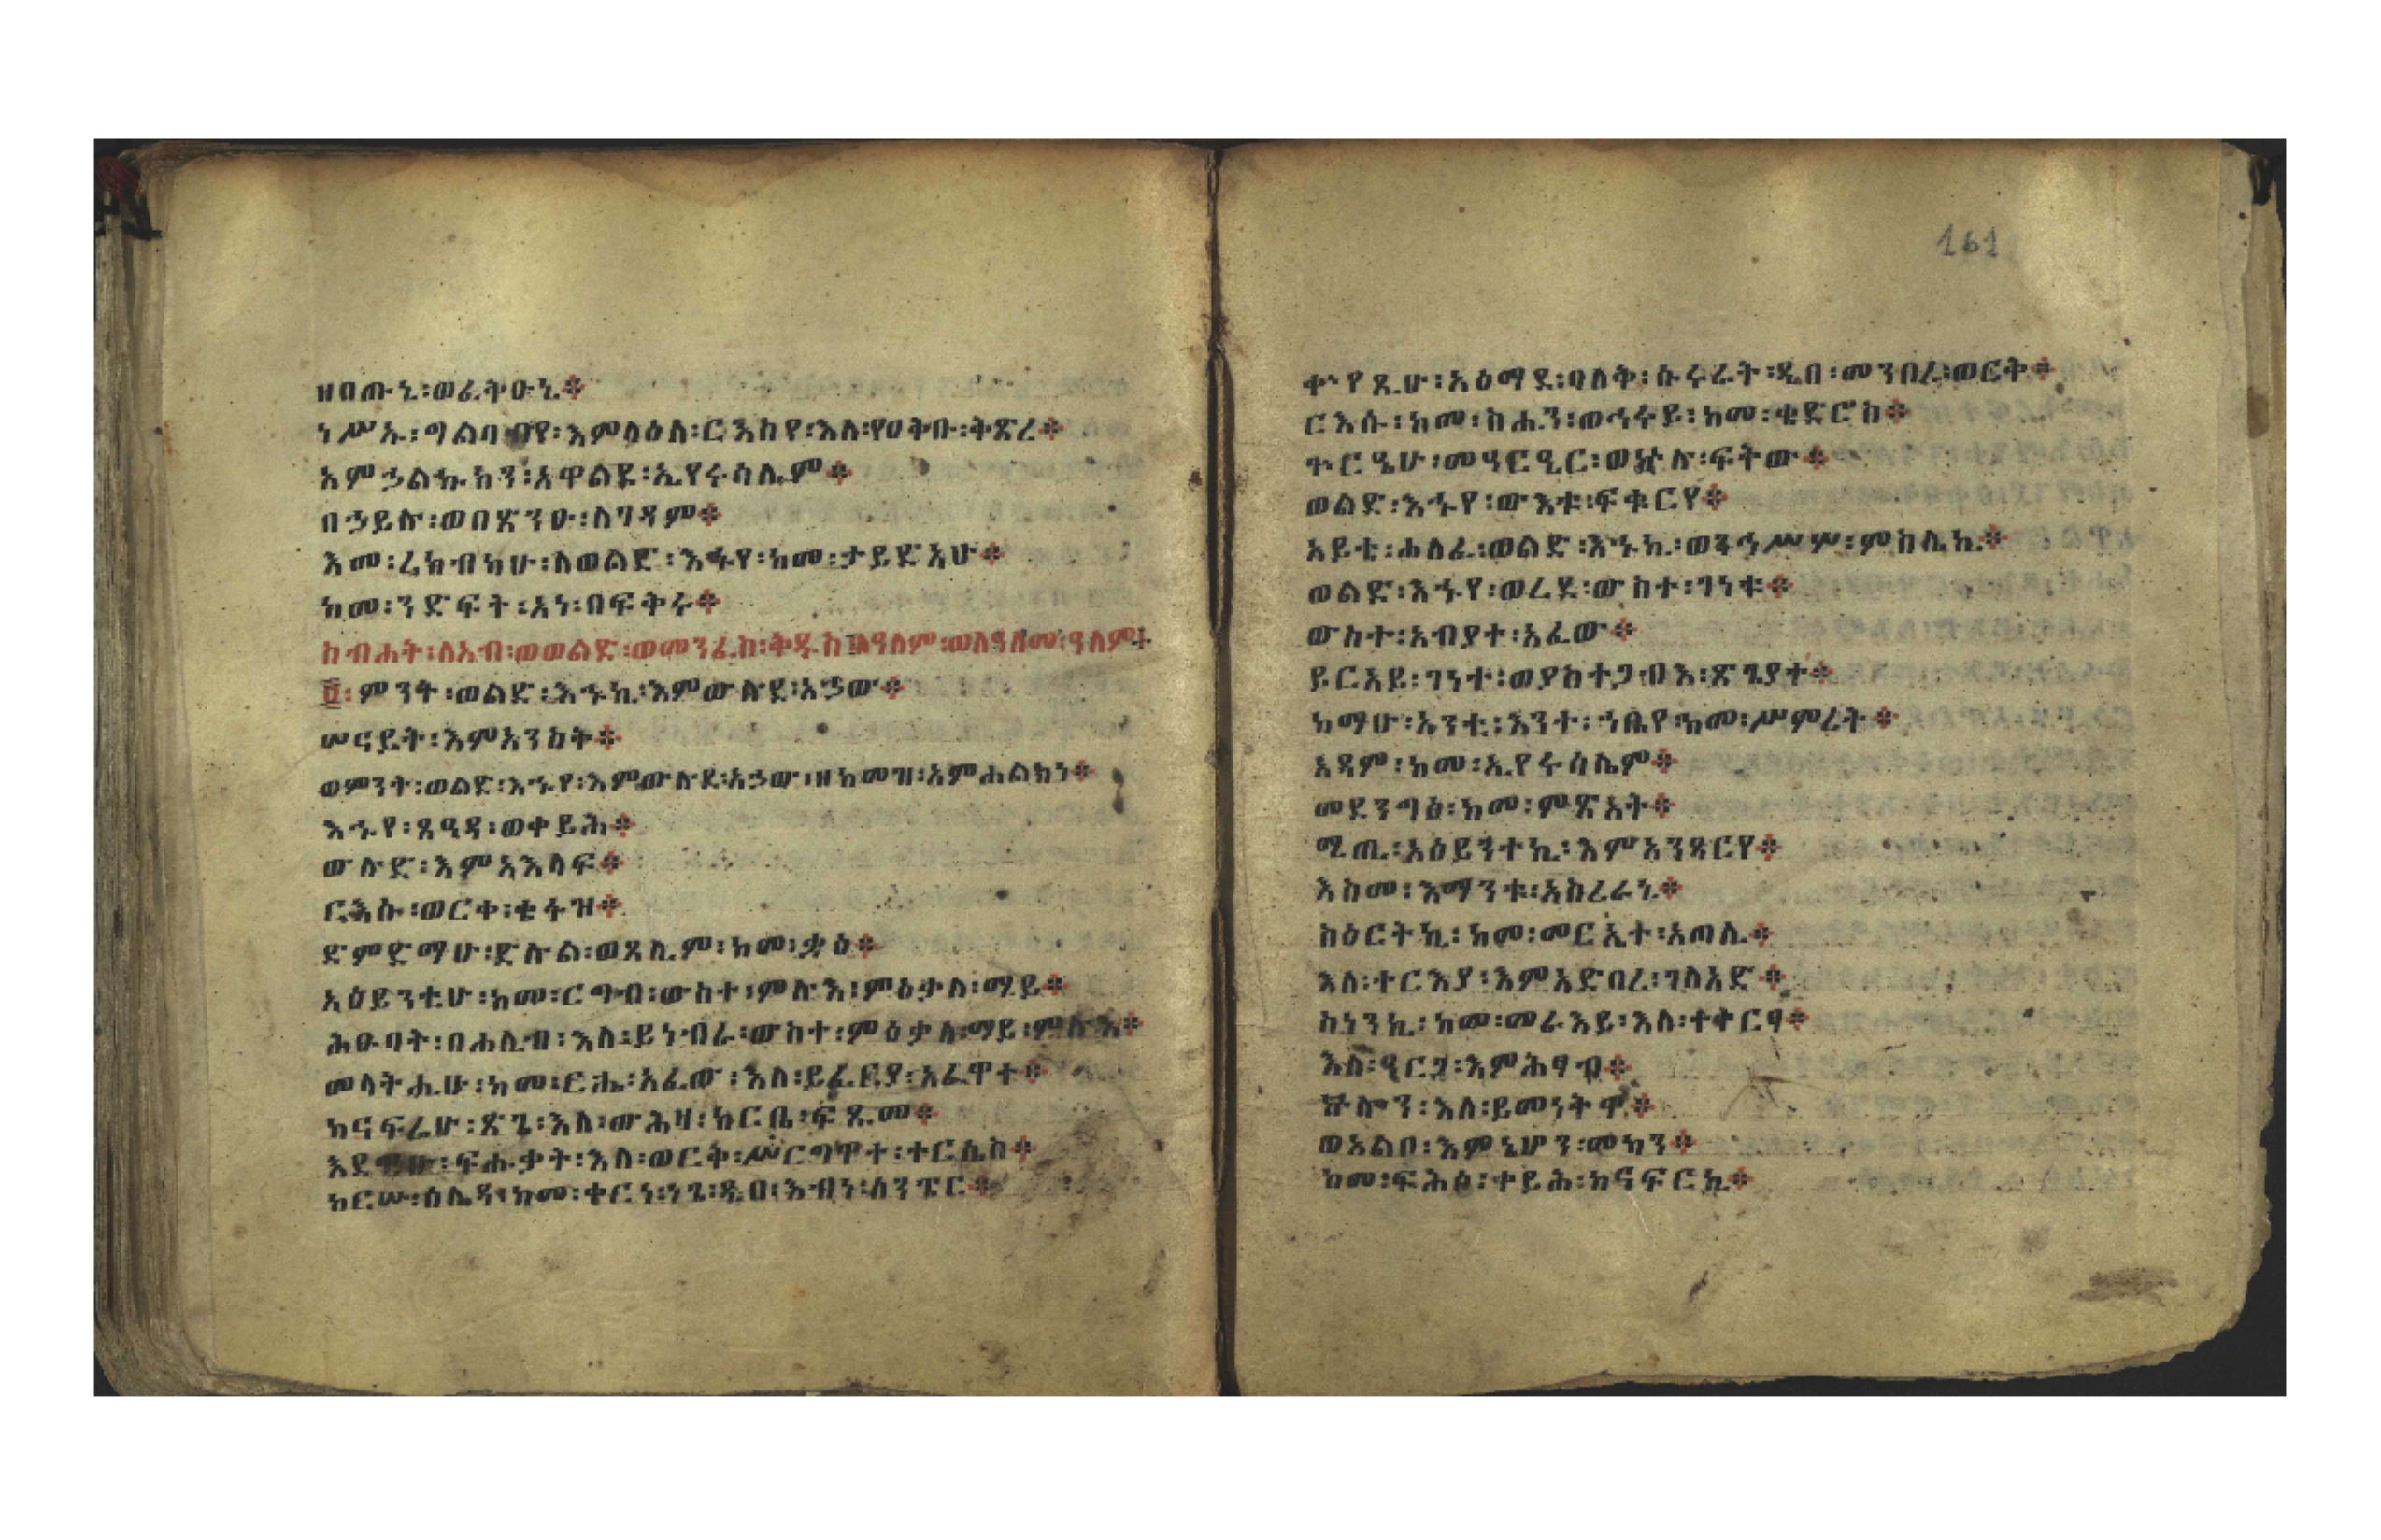 ዘበጡኒ፡ወፈትዑኒ፨
ነሥኡ፡ግልባቤየ፡እምላዕለ፡ርእስየ፡እለ፡የዐቅቡ፡ቅጽረ፨
አምኃልኩክን፡አዋልደ፡ኢየሩሳሌም፨
በኃይሉ፡ወበጽንዑ፡ለገዳም፨
እመ፡ረክብክሁ፡ለወልደ፡እኁየ፡ከመ፡ታይድእሁ፨
ከመ፡ንድፍት፡አነ፡በፍቅሩ፨
ስብሐት፡ለአብ፡ወወልድ፡ወመንፈስ፡ቅዱስ፡ለዓለም፡ወለዓለመ፡ዓለም፨
፬፡ምንት፡ወልድ፡እኁኪ፡እምውሉደ፡አኃው፨
ሠናይት፡እምአንስት፨
ወምንት፡ወልደ፡እኁየ፡እምውሉደ፡አኃው፡ዘከመዝ፡አምሐልክነ፨
እኁየ፡ጸዓዳ፡ወቀይሕ፨
ውሉድ፡እምአእላፍ፨
ርእሱ፡ወርቀ፡ቄፋዝ፨
ድምድማሁ፡ድሉል፡ወጸሊም፡ከመ፡ቋዕ፨
አዕይንቲሁ፡ከመ፡ርግብ፡ውስተ፡ምሉእ፡ምዕቃለ፡ማይ፨
ሕፁባት፡በሐሊብ፡እለ፡ይነብራ፡ውስተ፡ምዕቃለ፡ማይ፡ምሉእ፨
መላትሒሁ፡ከመ፡ፎሔ፡አፈው፡እለ፡ይፈርያ፡አፈዋተ፨
ከናፍሪሁ፡ጽጌ፡እለ፡ውሕዛ፡ከርቤ፡ፍጹመ፨
እደዊሁ፡ፍሑቃት፡እለ፡ወርቅ፡ሥርግዋተ፡ተርሴስ፨
ከርሡ፡ሰሌዳ፡ከመ፡ቀርነ፡ነጌ፡ዲበ፡እብነ፡ሰንፔር፨
161
ቍየጺሁ፡አዕማደ፡ባለቅ፡ሱሩራት፡ዲበ፡መንበረ፡ወርቅ፨
ርእሱ፡ከመ፡ስሒን፡ወኅሩይ፡ከመ፡ቄድሮስ፨
ጕርዔሁ፡መዓርዒር፡ወኵሉ፡ፍትው፨
ወልድ፡እኁየ፡ውእቱ፡ፍቁርየ፨
አይቴ፡ሐለፈ፡ወልድ፡እኁኪ፡ወንኅሥሦ፡ምስሌኪ፨
ወልድ፡እኁየ፡ወረደ፡ውስተ፡ገነቱ፨
ውስተ፡አብያተ፡አፈው፨
ይርአይ፡ገነተ፡ወያስተጋብእ፡ጽጌያተ፨
ከማሁ፡አንቲ፡እንተ፡ኀቤየ፡ከመ፡ሥምረት፨
አዳም፡ከመ፡ኢየሩሳሌም፨
መደንግፅ፡ከመ፡ምጽአት፨
ሚጢ፡አዕይንተኪ፡እምአንጻርየ፨
እስመ፡እማንቱ፡አስረራኒ፨
ስዕርትኪ፡ከመ፡መርኤተ፡አጣሊ፨
እለ፡ተርእያ፡እምአድበረ፡ገለአድ፨
ስነንኪ፡ከመ፡መራእይ፡እለ፡ተቀርፃ፨
እለ፡ዓርጋ፡እምሕፃብ፨
ኵሎን፡እለ፡ይመነትዋ፨
ወአልቦ፡እምኔሆን፡መካን፨
ከመ፡ፍሕፅ፡ቀይሕ፡ከናፍርኪ፨